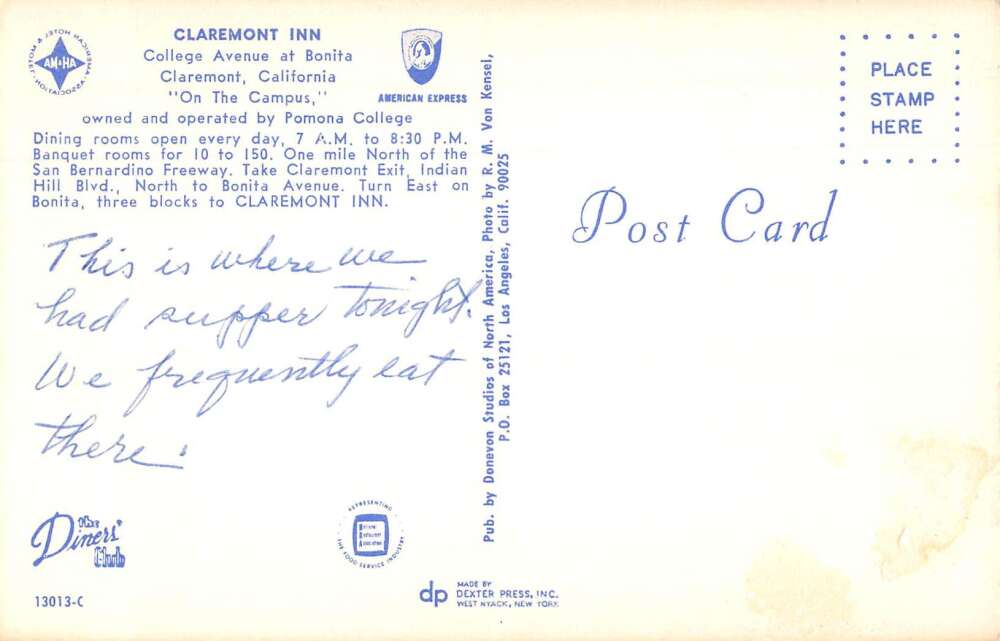 AMERICAN HOTEL & MOTEL ASSOCIATION
AM HA
CLAREMONT INN
College Avenue at Bonita
Claremont, California
"On The Campus,"
owned and operated by Pomona College
AMERICAN EXPRESS
Dining rooms open every day, 7 A.M. to 8:30 P.M.
Banquet rooms for 10 to 150. One mile North of the
San Bernardino Freeway. Take Claremont Exit, Indian
Hill Blvd., North to Bonita Avenue. Turn East on
Bonita, three blocks to CLAREMONT INN.
This is where we
had supper tonight.
We frequently eat
there.
The
Diners'
Club
REPRESENTING
National
Restaurant
Association
THE FOOD SERVICE INDUSTRY
13013-C
Pub. by Donevon Studios of North America, Photo by R. M. Von Kensel,
P.O. Box 25121, Los Angeles, Calif. 90025
dp
MADE BY
DEXTER PRESS, INC.
WEST NYACK, NEW YORK
Post Card
PLACE
STAMP
HERE